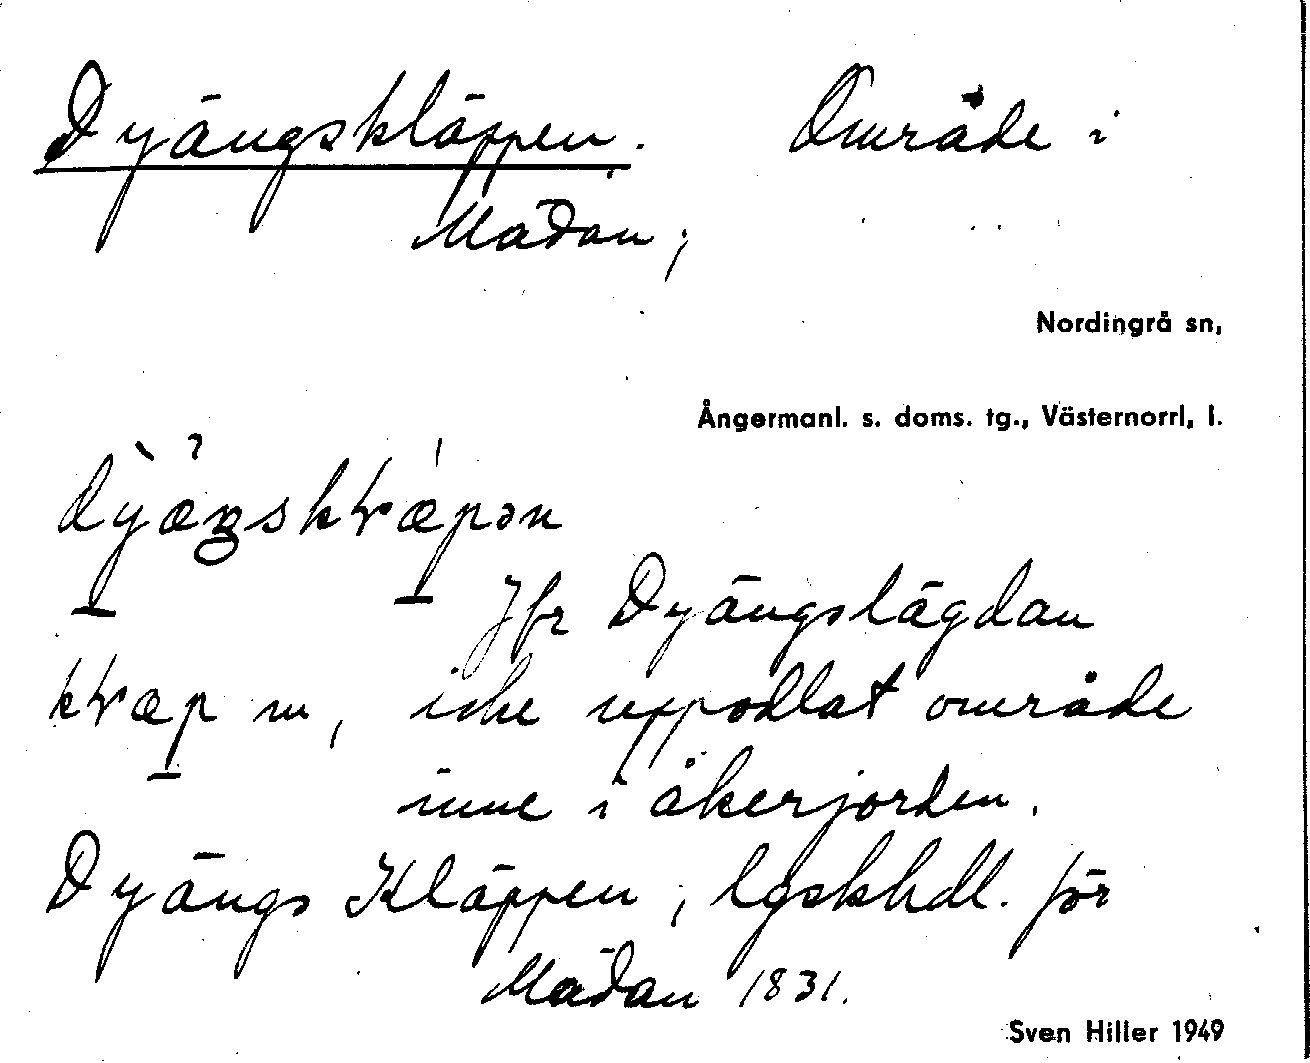 Dyängskläppen. Område i
Mädan;
Nordingrå sn,
Ångermanl. s. doms. tg., Västernorrl, l.
Jfr Dyängslägdan
m, icke uppodlat område
inne i åkerjorden.
Dyängs Kläppen, lgskhdl. för
Mädan 1831.
Sven Hiller 1949